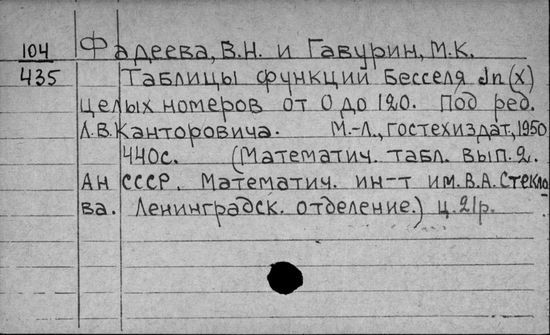 104 Фадеева, В.Н. и Гавурин, М.К.
435 Таблицы функций Бесселя Jn(x)
целых номеров от 0 до 120. Под ред.
Л.В. Канторовича. М.-Л., Гостехиздат, 1950
440с. (Математич. табл. вып. 2.
АН СССР. Математич. ин-т им. В.А. Стекло
ва. Ленинградск. отделение.) ц. 21р.